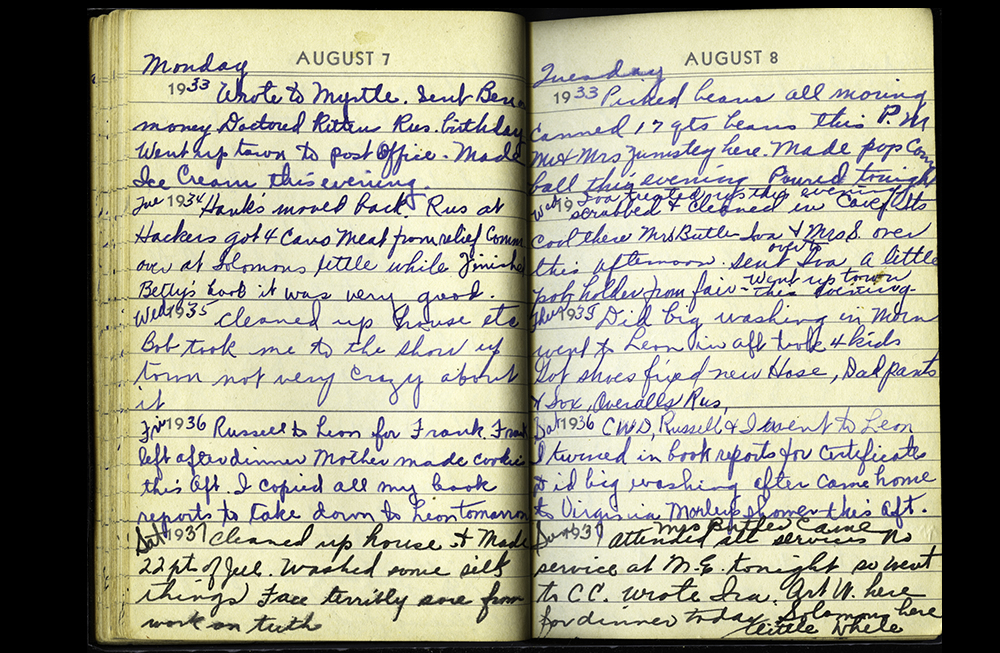 AUGUST 7
Monday
1933 Wrote to Myrtle. Sent
money Doctored Kittens Rus. birthday
Went up town to post Office. Made
Ice Cream this evening.
Tue 1934 Hank's moved back. Rus at
Hackers got 4 Cans Meat from relief Comm
over at Solomons little while Finished
Betty's book it was very good.
Wed 1935 cleaned up house etc
Bob took me to the show up
town not very crazy about
it
Fri 1936 Russell to Leon for Frank. Frank
left after dinner Mother made cookies
this aft. I copied all my book
reports to take down to Leon tomorrow
Sat 1937 cleaned up house & Made
22 pt of Jell. Washed some silk
things Face terribly sore from
work on teeth
AUGUST 8
Tuesday
1933 Picked beans all moring
Canned 17 qts beans this P.M
Mr & Mrs here. Made pop Corn
ball this evening Poured tonight
Iva this evening
Wed 19 scrubbed & cleaned in Its
Cool there Mrs Butler Iva & Mrs S. over
this afternoon. sent over to Iva a little
pot holder from fair - Went up town
this evening -
Thu 1935 Did big washing in Morn
went to Leon in aft took 4 kids
Got shoes fixed new Hose, Dad pants
& Sox, Overalls Rus,
Sat 1936 CWD, Russell & I went to Leon
I turned in book reports for Certificates
Did big washing after came home
to Virginia Morleys shower this aft.
Mrs Butler came
Sun 1937 attended all services No
service at M.E. tonight so went
to C.C. wrote Ira. Art W. here
for dinner today Solomons here
little while